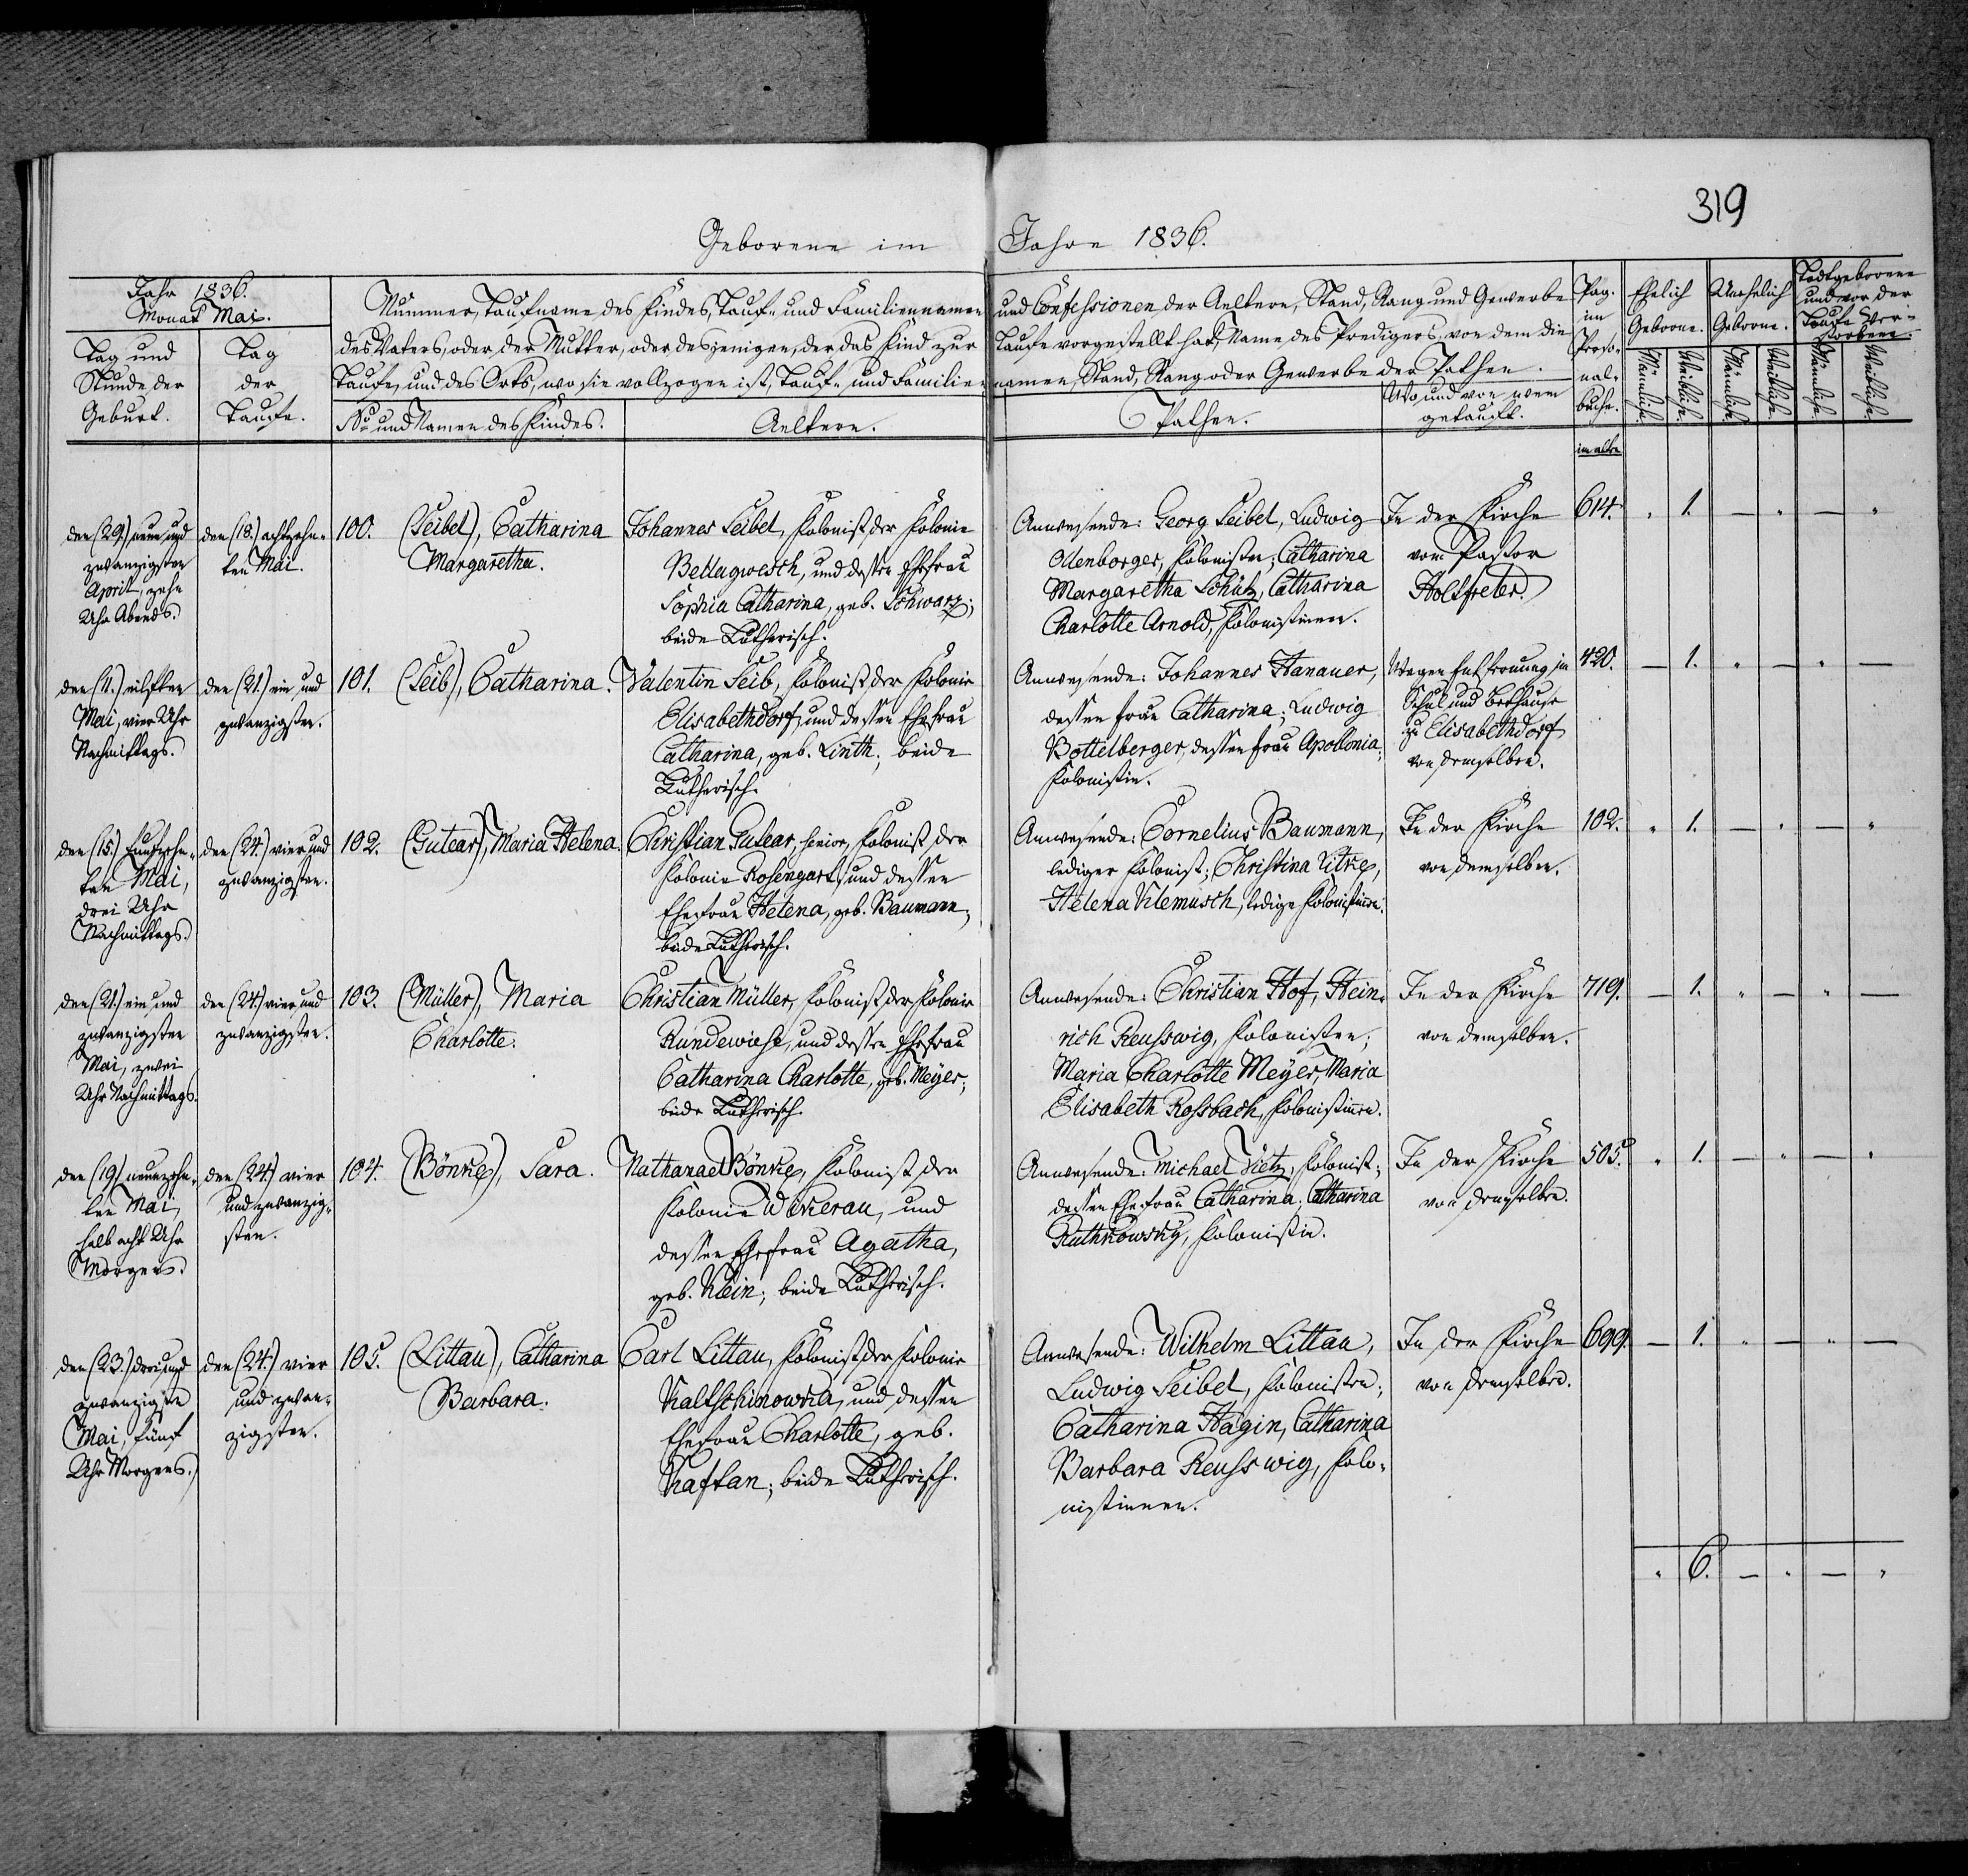 319
Geborene im Jahre 1836.
Jahr 1836.
Monat Mai.
Tag und
Stunde der
Geburt.
Tag
der
Taufe.
Nummer, Taufname des Kindes, Tauf- und Familiennamen
des Vaters, oder der Mutter, oder desjenigen, der das Kind zur
Taufe, und des Orts, wo sie vollzogen ist, Tauf- und Familien
No und Namen des Kindes.
Aeltern.
und Confessionen der Aeltern, Stand, Rang und Gewerbe
Taufe vorgestellt hat, Name des Predigers, von dem die
namen, Stand, Rang oder Gewerbe der Pathen.
Pathen.
Wo und von wem
getauft.
Pag.
im
Perso-
nal-
buche.
im alten
Ehelich
Geborne.
Unehelich
Geborne.
Todtgeborene
und vor der
Taufe Ver-
storbene.
Männliche.
Weibliche.
Männliche.
Weibliche.
Männliche.
Weibliche.
den (29.) neun und
zwanzigsten
April, zehn
Uhr Abends.
den (18.) achtzehn-
ten Mai.
100.
(Seibel), Catharina
Margaretha.
Johannes Seibel, Kolonist der Kolonie
Bellagwesch, und dessen Ehefrau
Sophia Catharina, geb. Schwarz;
beide Lutherisch.
Anwesende: Georg Seibel, Ludwig
Odenborger, Kolonisten; Catharina
Margaretha Schütz, Catharina
Charlotte Arnold, Kolonistinnen.
In der Kirche
vom Pastor
Holtfreter.
614. " 1. — " — "
den (11.) eilften
Mai, vier Uhr
Nachmittags.
den (21.) ein und
zwanzigsten.
101.
(Seib), Catharina.
Valentin Seib, Kolonist der Kolonie
Elisabethdorf, und dessen Ehefrau
Catharina, geb. Linth; beide
Lutherisch.
Anwesende: Johannes Hanauer,
dessen Frau Catharina; Ludwig
Bottelberger, dessen Frau Apollonia;
Kolonistin.
Wegen Entfernung im
Schul und Bethause
zu Elisabethdorf
von demselben.
420. — 1. " — " —
den (15.) Funfzehn-
ten Mai,
drei Uhr
Nachmittags.
den (24.) vier und
zwanzigsten.
102.
(Gutear), Maria Helena.
Christian Gutear, senior, Kolonist der
Kolonie Rosengart, und dessen
Ehefrau Helena, geb. Baumann;
beide Lutherisch.
Anwesende: Cornelius Baumann,
lediger Kolonist; Christina Litke,
Helena Klemusch, ledige Kolonistinnen.
In der Kirche
von demselben.
102. " 1. — " — "
den (21.) ein und
zwanzigsten
Mai, zwei
Uhr Nachmittags.
den (24.) vier und
zwanzigsten.
103.
(Müller), Maria
Charlotte.
Christian Müller, Kolonist der Kolonie
Rundewiese, und dessen Ehefrau
Catharina Charlotte, geb. Meÿer;
beide Lutherisch.
Anwesende: Christian Hof, Hein-
rich Reusswig, Kolonisten;
Maria Charlotte Meÿer, Maria
Elisabeth Rossbach, Kolonistinnen.
In der Kirche
von demselben.
719. — 1. " — " —
den (19.) neunzehn-
ten Mai,
halb acht Uhr
Morgens.
den (24.) vier
und zwanzig-
sten.
104.
(Bönke), Sara.
Nathanael Bönke, Kolonist der
Kolonie Wikerau, und
dessen Ehefrau Agatha,
geb. Klein; beide Lutherisch.
Anwesende: Michael Tietz, Kolonist;
dessen Ehefrau Catharina; Catharina
Ruthkowskÿ, Kolonistin.
In der Kirche
von demselben.
505. " 1. — " — "
den (23.) drei und
zwanzigsten
Mai, fünf
Uhr Morgens.
den (24.) vier
und zwan-
zigsten.
105.
(Littau), Catharina
Barbara.
Carl Littau, Kolonist der Kolonie
Kaltschinowka, und dessen
Ehefrau Charlotte, geb.
Kaftan; beide Lutherisch.
Anwesende: Wilhelm Littau,
Ludwig Seibel, Kolonisten;
Catharina Hägin, Catharina
Barbara Reusswig, Kolo-
nistinnen.
In der Kirche
von demselben.
699. — 1. " — " —
" 6. — " — "